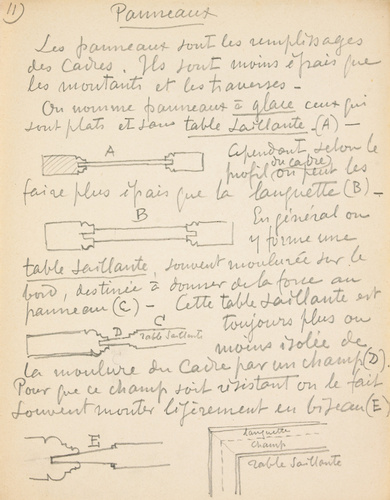 11)
Panneaux
Les panneaux sont les remplissages
des Cadres. Ils sont moins épais que
les montants et les traverses -
On nomme panneaux à glace ceux qui
sont plats et sans table saillante - (A) -
A
Cependant selon le
profil du cadre on peut les
faire plus épais que la languette (B) -
B
En général on
y forme une
table saillante, souvent moulurée sur le
bord, destinée à donner de la force au
panneau (C) - Cette table saillante est
D C
table saillante
toujours plus ou
moins isolée de
la moulure du cadre par un champ (D).
Pour que ce champ soit résistant on le fait
souvent monter légèrement en biseau (E)
E
languette
champ
table saillante